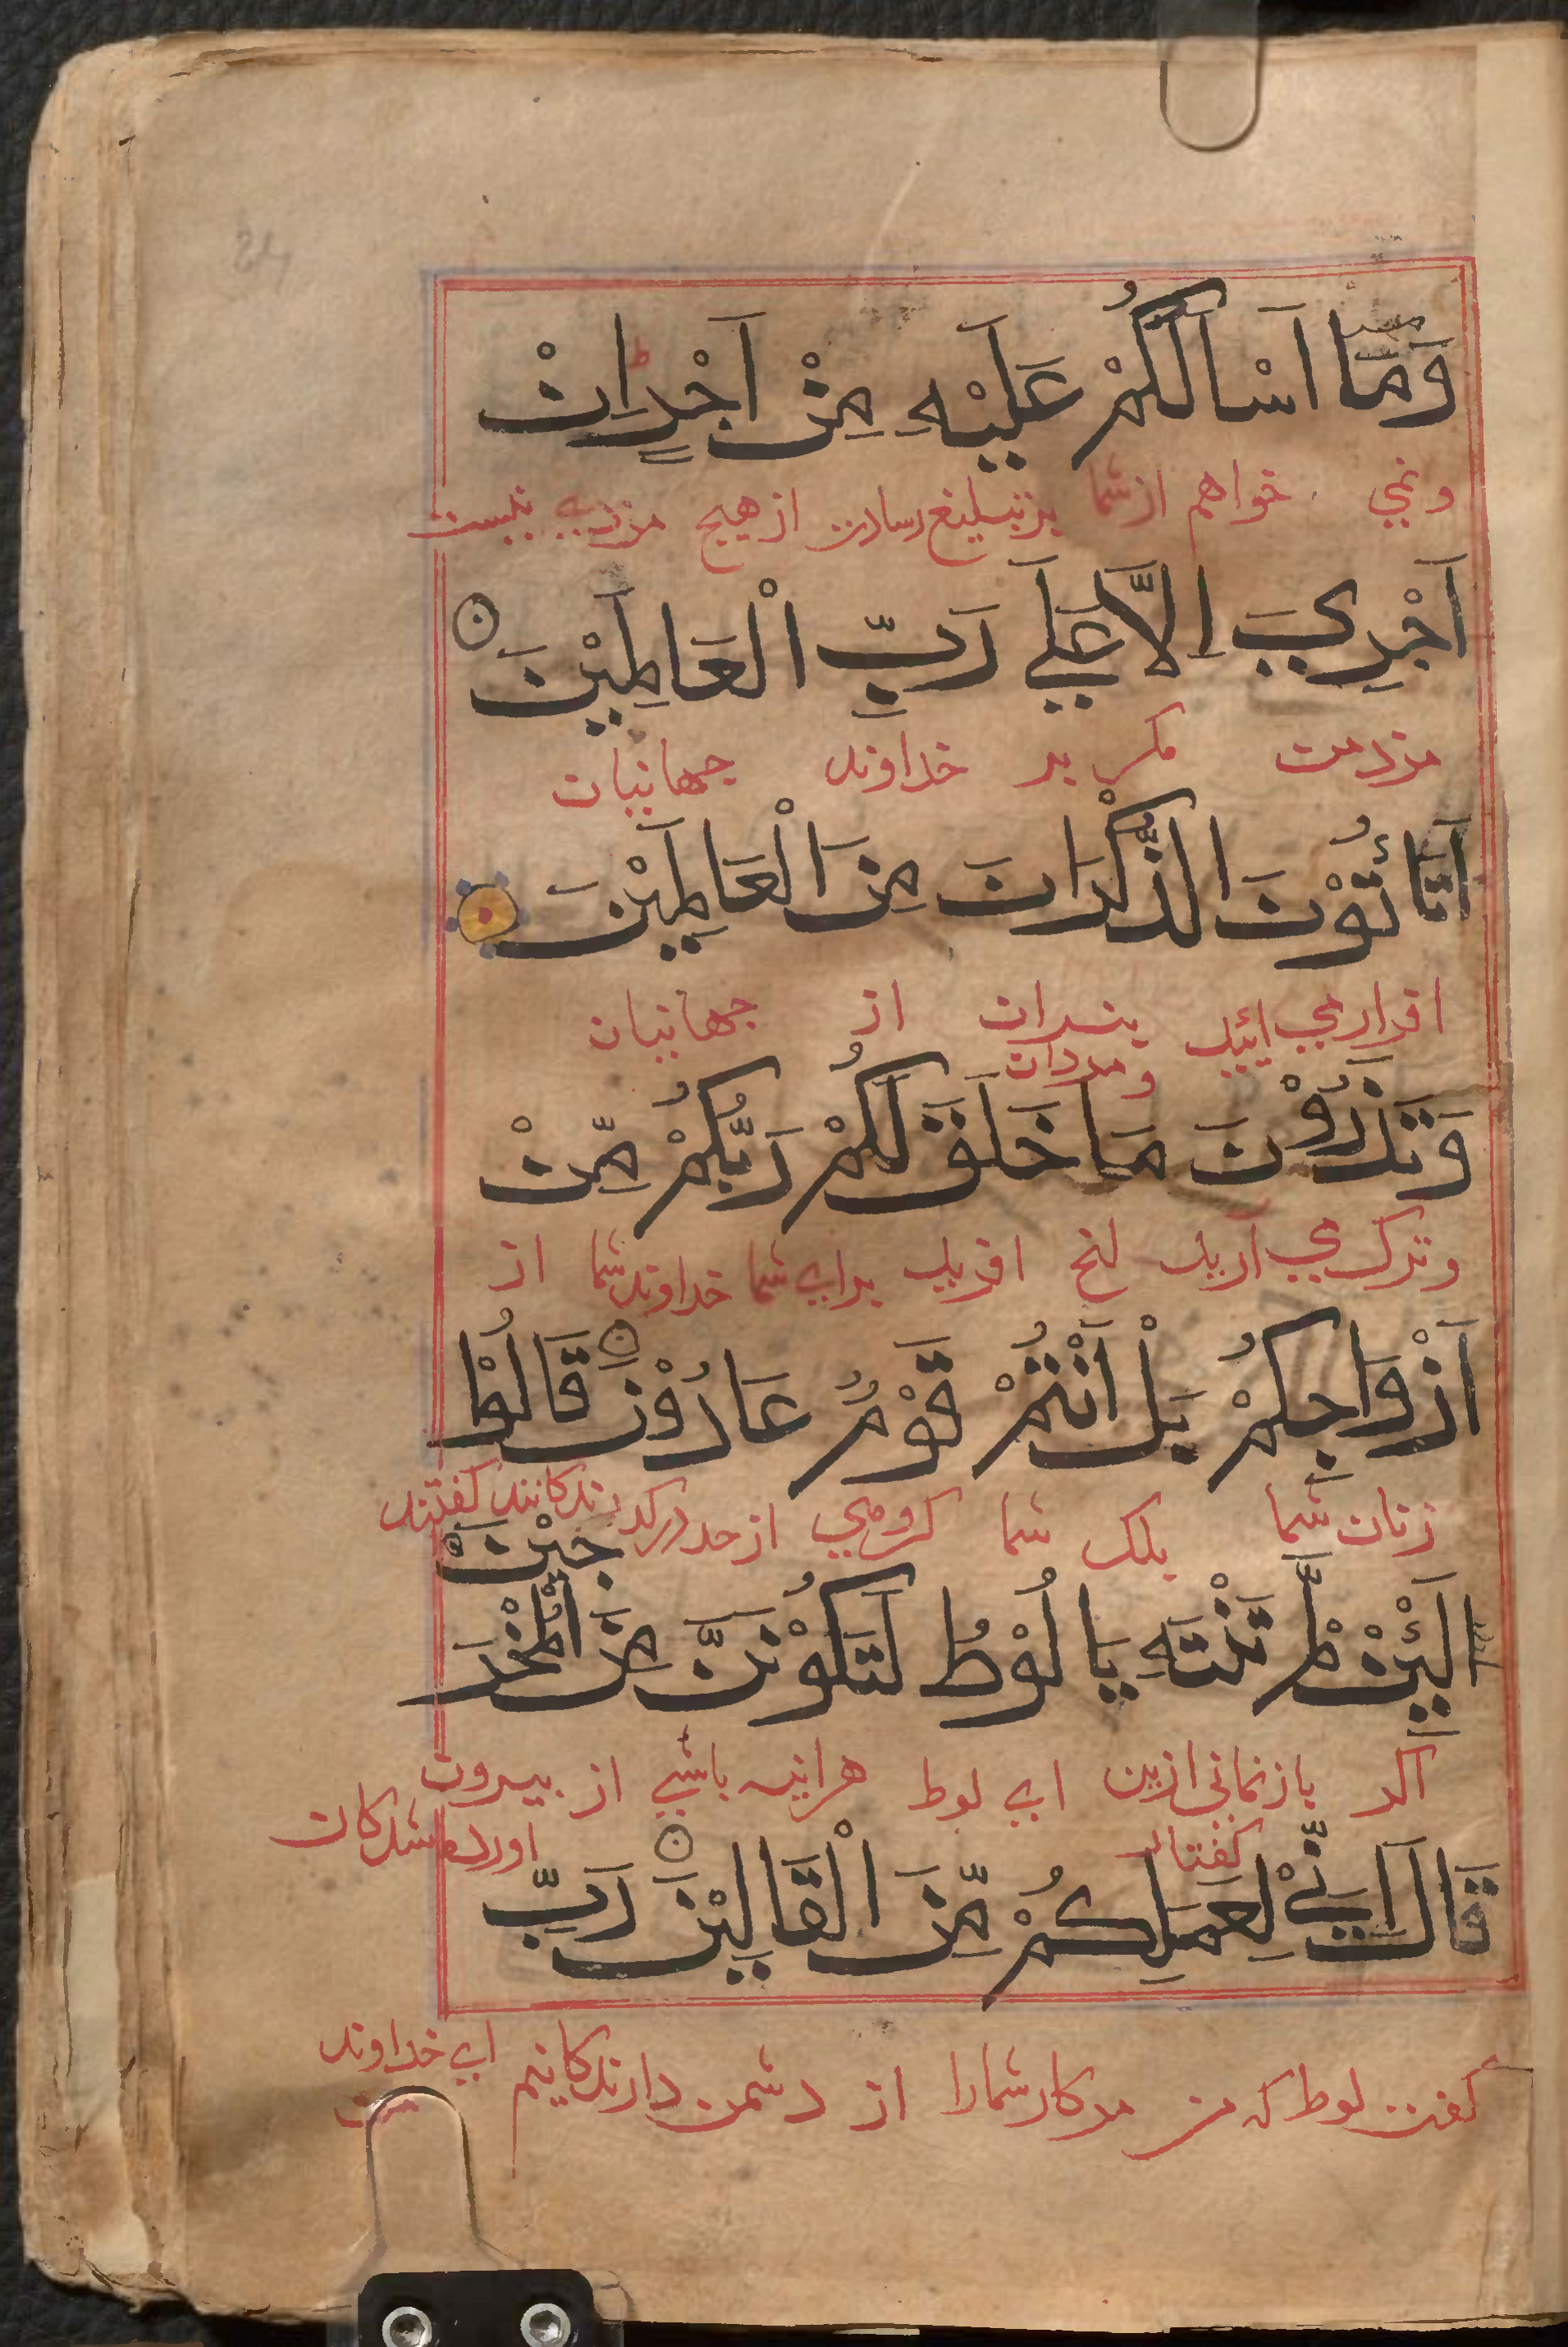 وَمَا اَسْاَلُكُمْ عَلَيْهِ مِنْ اَجْرٍ اِنْ
ونمي خواهم از شما بر تبليغ رسالت از هيچ مزدي نيست
اَجْرِيَ اِلَّا عَلَي رَبِّ الْعَالَمِيْنَ
مزد من مكر بر خداوند جهانيان
اَتَأْتُوْنَ الذُّكْرَانَ مِنَ الْعَالَمِيْنَ
ايا مي آئيد پسران از جهانيان
و مردان
وَتَذَرُوْنَ مَا خَلَقَ لَكُمْ رَبُّكُمْ مِّنْ
وترك مي آريد انچ افريد براي شما خداوند شما از
اَزْوَاجِكُمْ بَلْ اَنْتُمْ قَوْمٌ عَادُوْنَ قَالُوْا
زنان شما بلك شما كروهي از حد دركذرندكانند كفتند
لَئِنْ لَّمْ تَنْتَهِ يَا لُوْطُ لَتَكُوْنَنَّ مِنَ الْمُخْرَجِيْنَ
اكر باز نماني ازين اي لوط هراينه باشي از بيرون
اورده شدكان
قَالَ اِنِّيْ لِعَمَلِكُمْ مِّنَ الْقَالِيْنَ رَبِّ
كفت لوط كه من مر كار شما را از دشمن دارندكانيم اي خداوند
من